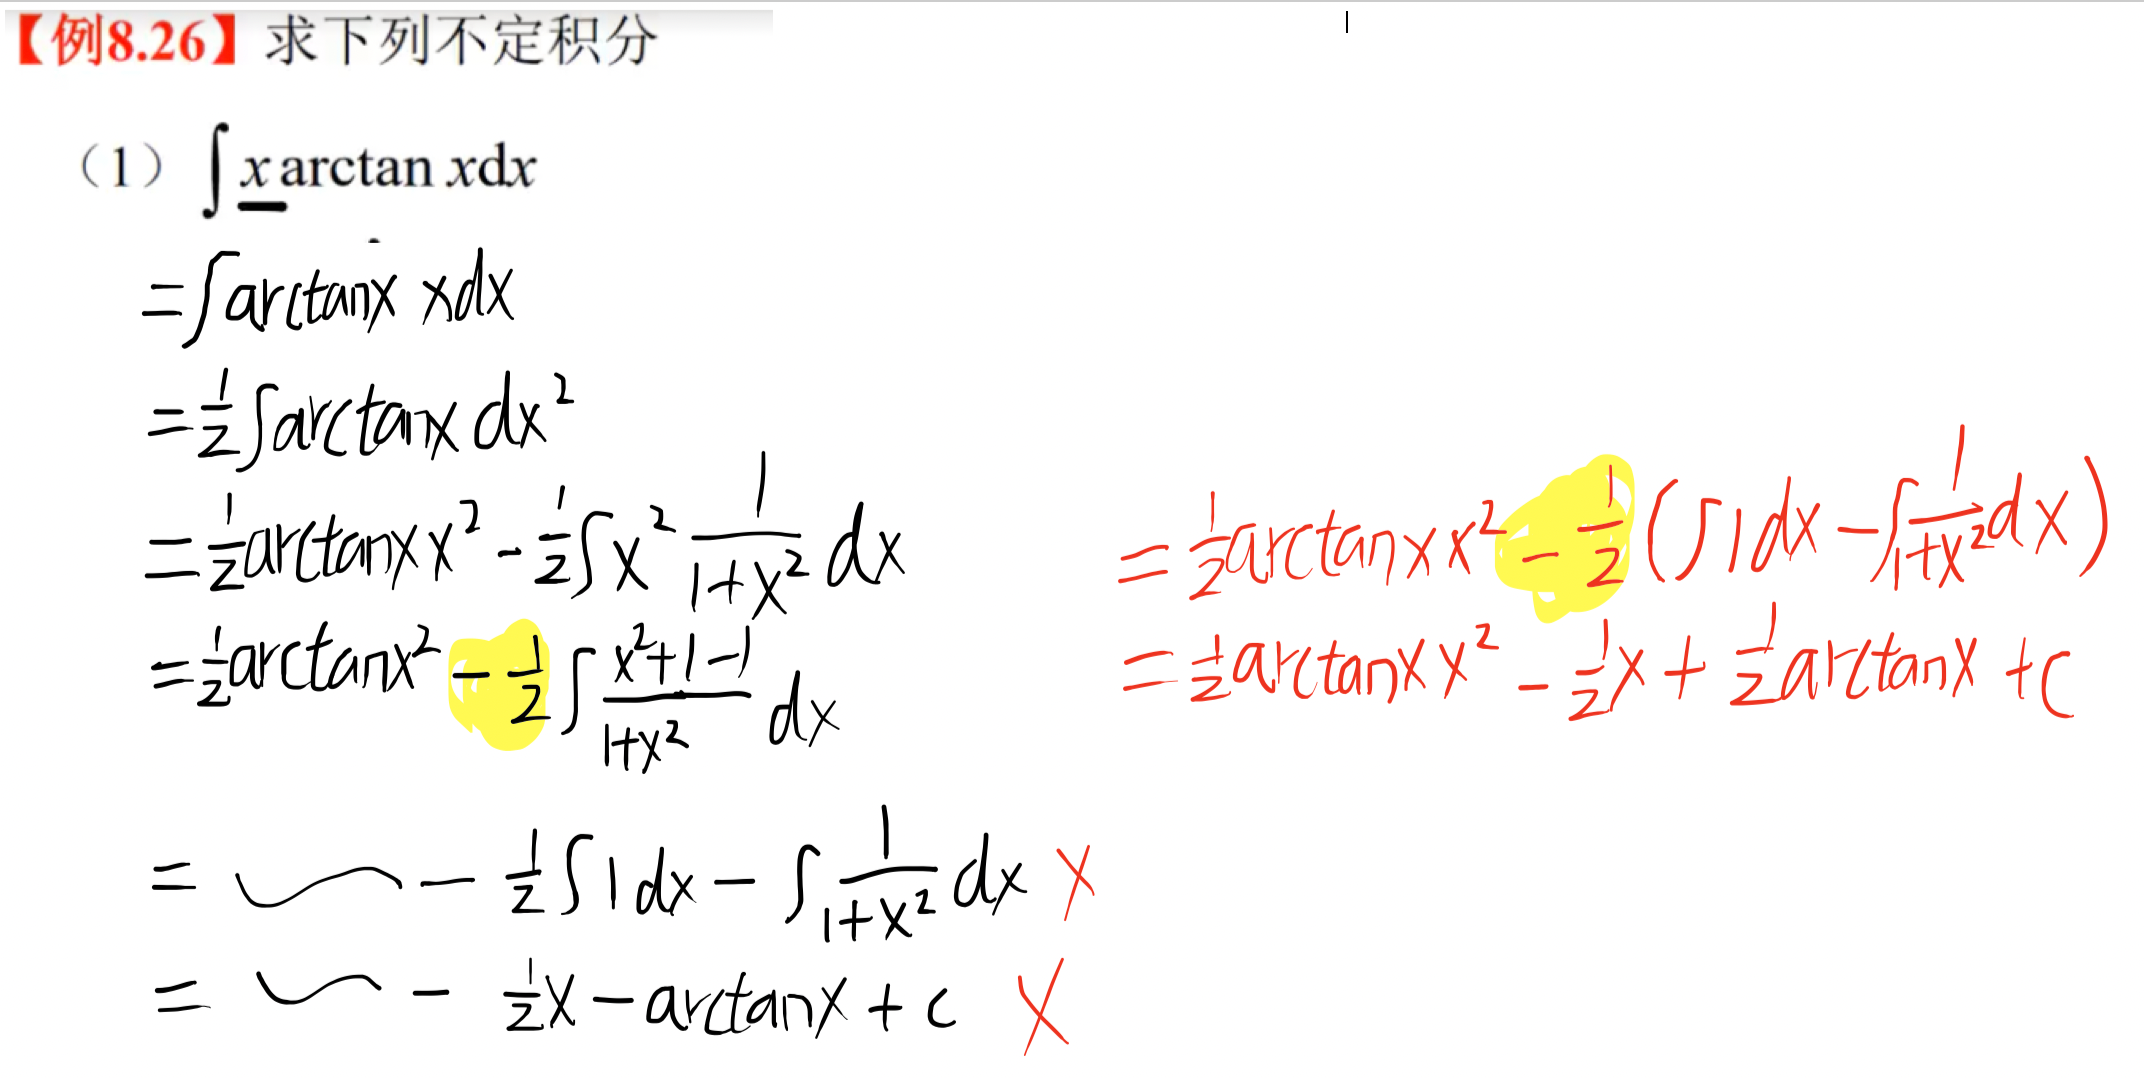 【例8.26】求下列不定积分
（1）∫x arctan xdx
=∫arctanx xdx
=½∫arctanx dx²
=½arctanx x² - ½∫x² 1/(1+x²) dx
=½arctanx² - ½∫(x²+1-1)/(1+x²) dx
= ﹏ - ½∫1dx - ∫1/(1+x²) dx X
= ﹏ - ½x - arctanx + c X
=½arctanx x² - ½(∫1dx - ∫1/(1+x²) dx)
=½arctanx x² - ½x + ½arctanx + c